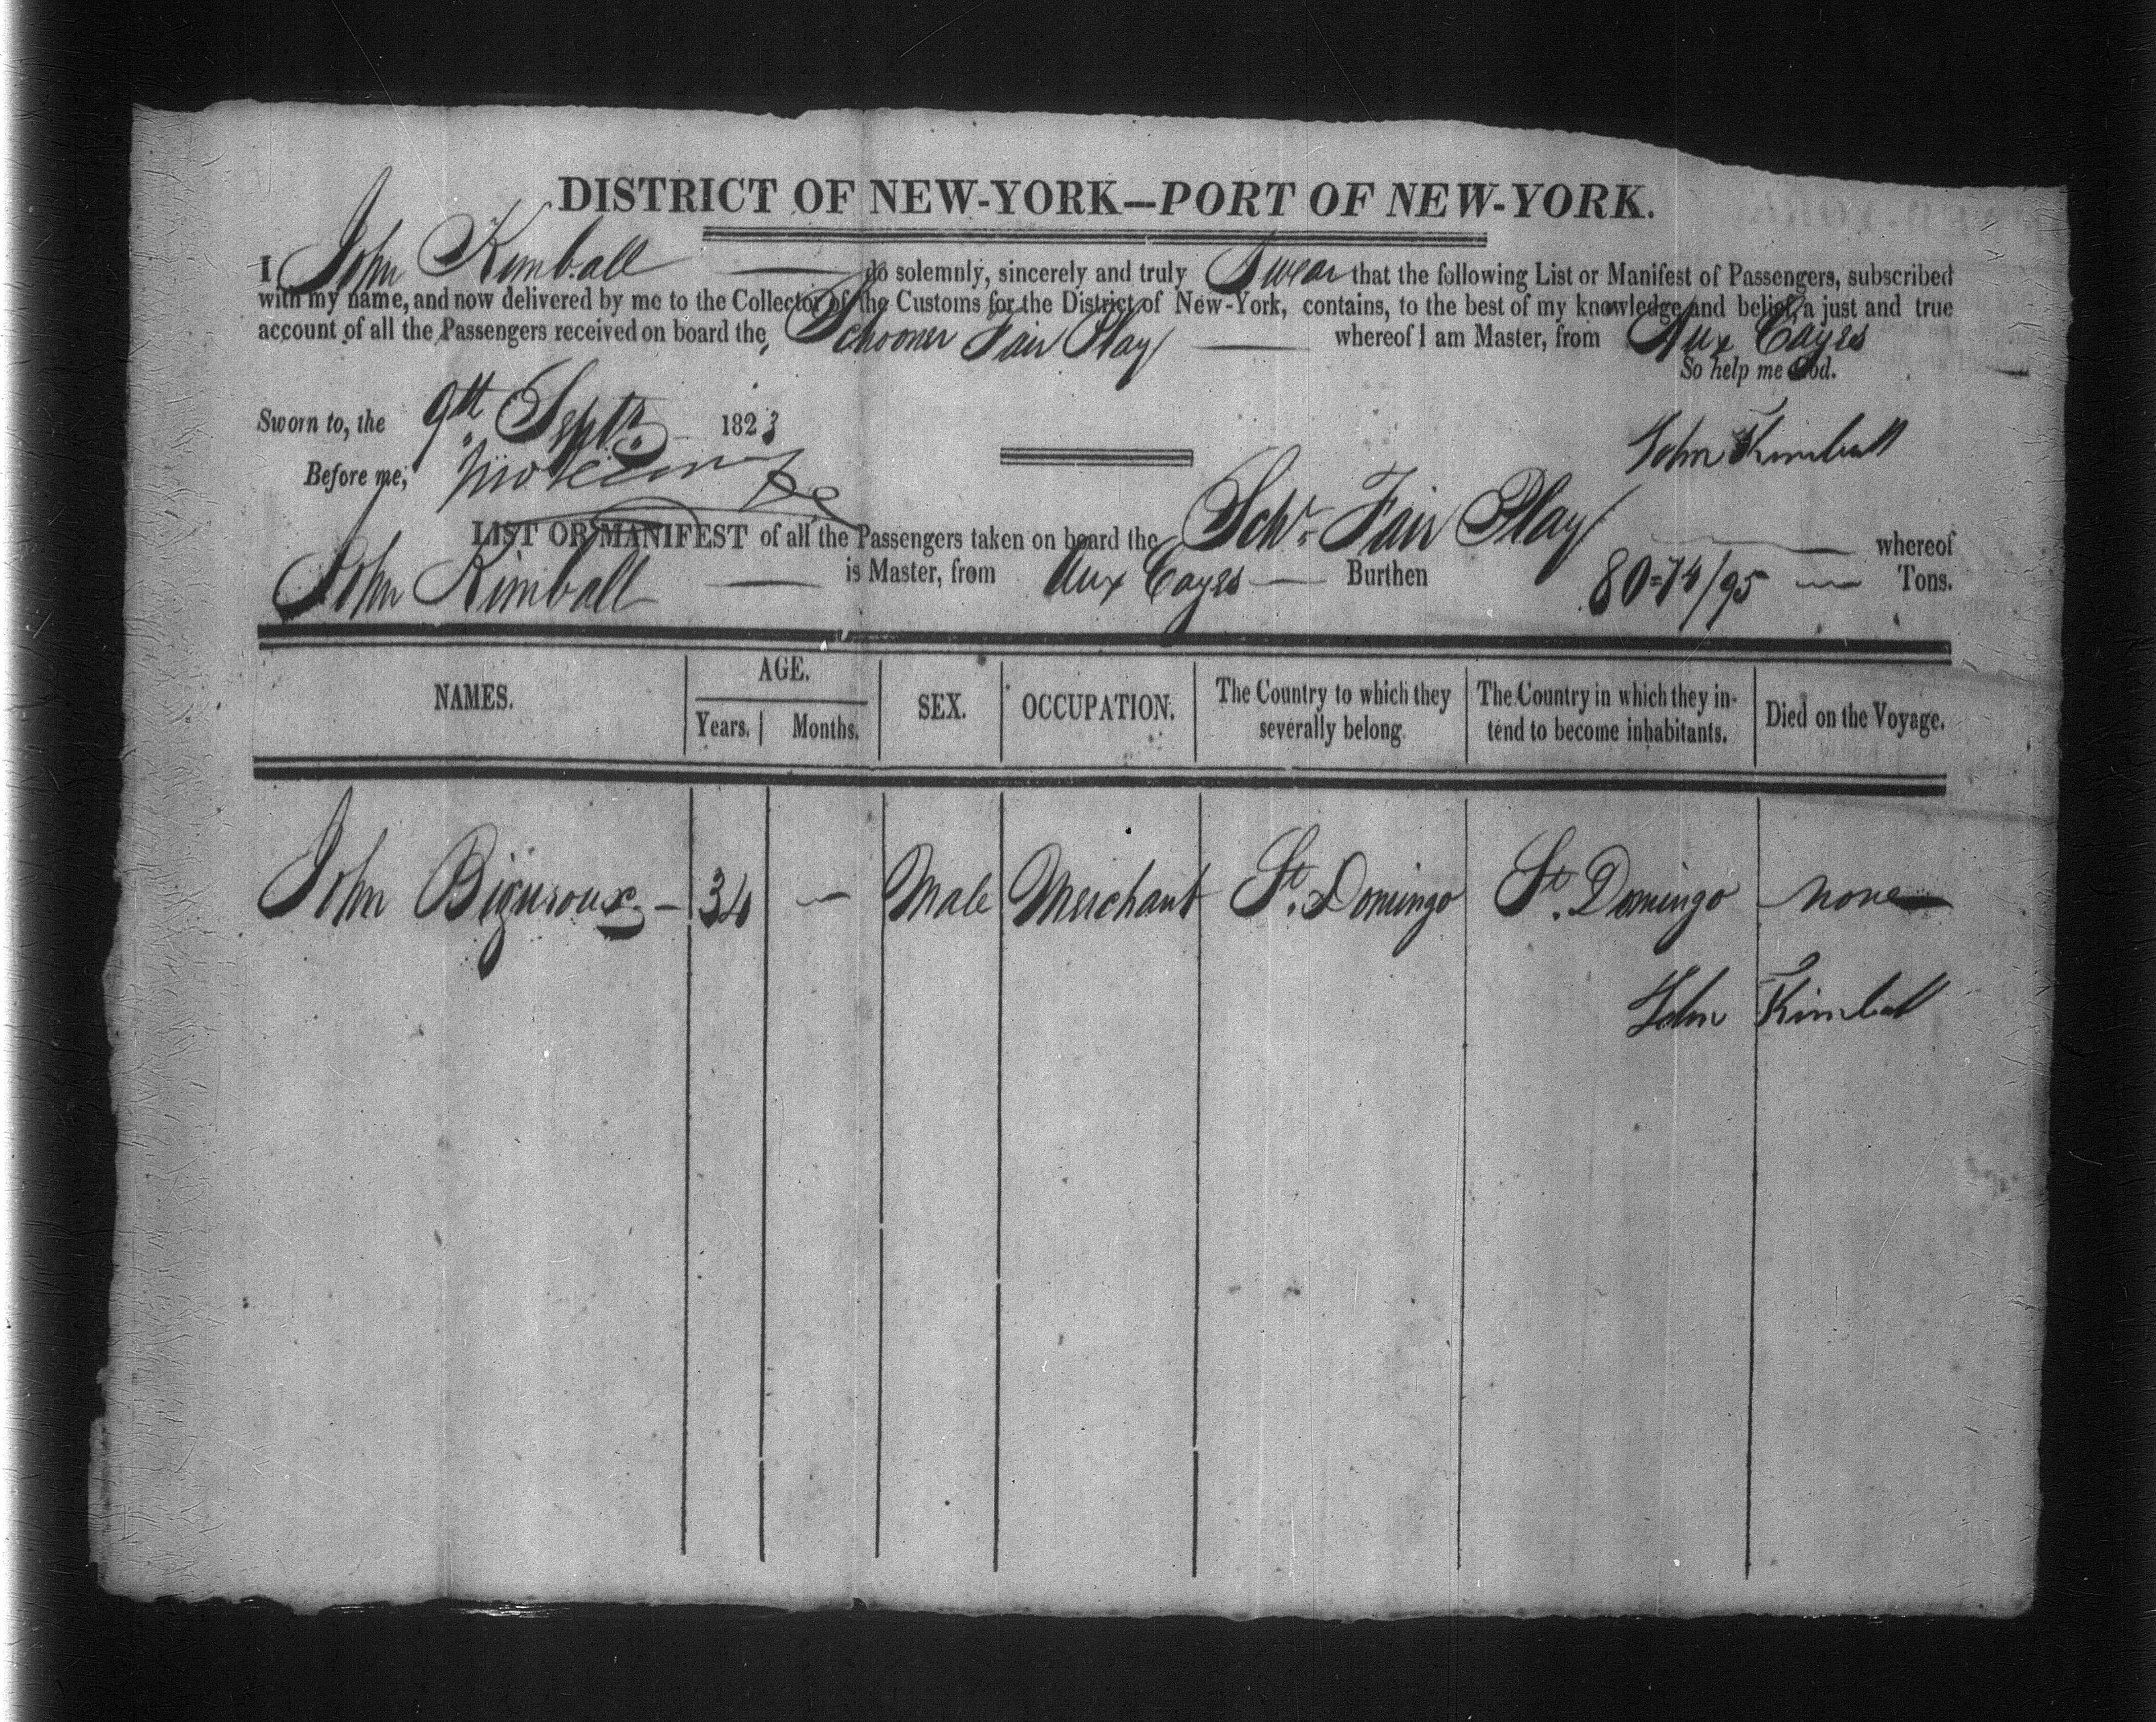 DISTRICT OF NEW-YORK—PORT OF NEW-YORK.
I John Kimball do solemnly, sincerely and truly Swear that the following List or Manifest of Passengers, subscribed
with my name, and now delivered by me to the Collector of the Customs for the District of New-York, contains, to the best of my knowledge and belief, a just and true
account of all the Passengers received on board the, Schooner Fair Play whereof I am Master, from Aux Cayes
So help me God.
Sworn to, the 9th Septr. 1823
John Kimball
Before me,
LIST OR MANIFEST of all the Passengers taken on board the Schr. Fair Play whereof
John Kimball is Master, from Aux Cayes Burthen 80=74/95 Tons.
NAMES. AGE. Years. Months. SEX. OCCUPATION. The Country to which they severally belong. The Country in which they intend to become inhabitants. Died on the Voyage.
John — 34 — Male Merchant St. Domingo St. Domingo none
John Kimball